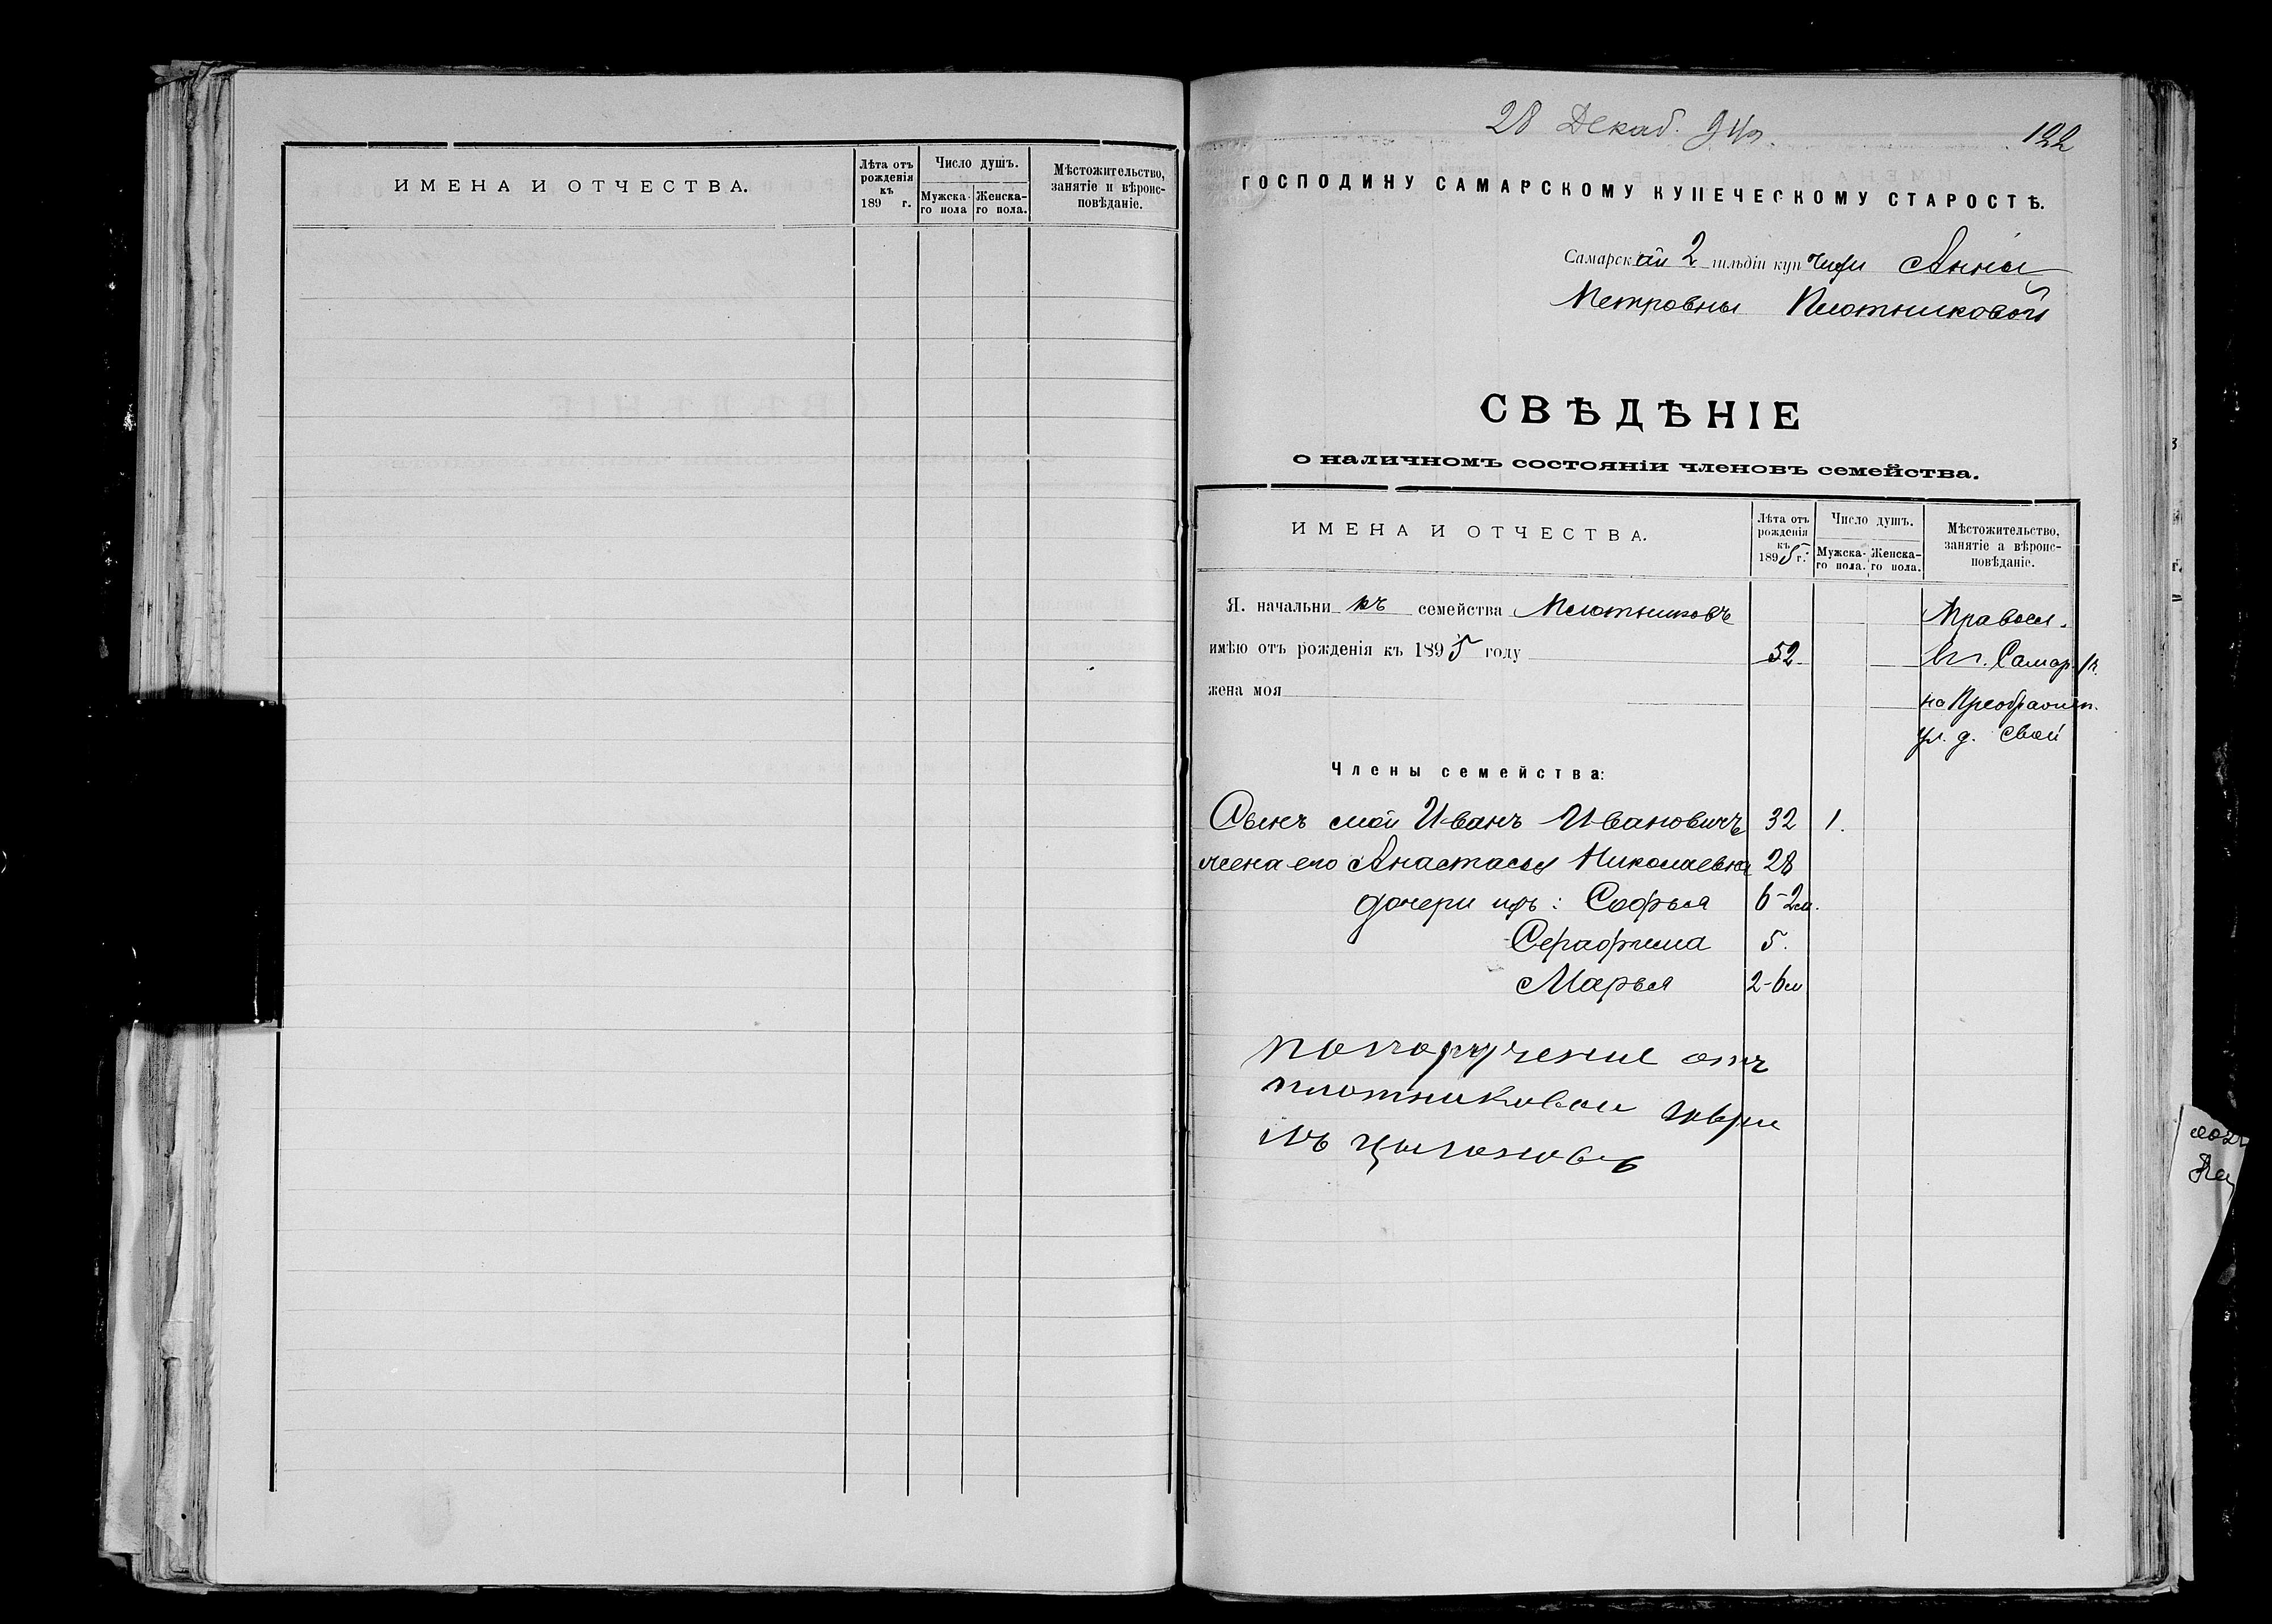 ИМЕНА И ОТЧЕСТВА.
Лѣта отъ рожденія къ 189 г.
Число душъ.
Мужска-го пола
Женска-го пола.
Мѣстожительство, занятіе и вѣроис-повѣданіе.
28 Декаб. 94 г.
122
ГОСПОДИНУ САМАРСКОМУ КУПЕЧЕСКОМУ СТАРОСТѢ.
Самарской 2 гильдіи купчихи Анны
Петровны Плотниковой
СВѢДѢНІЕ
о наличномъ состояніи членовъ семейства.
ИМЕНА И ОТЧЕСТВА.
Лѣта отъ рожденія къ 1895 г.
Число душъ.
Мужска-го пола.
Женска-го пола.
Мѣстожительство, занятіе а вѣроис-повѣданіе.
Я. начальникъ семейства Плотниковъ
Правосл.
имѣю отъ рожденія къ 1895 году 52
Въ г. Самар
жена моя
на Преображен.
ул. д. свой
Члены семейства:
Сынъ мой Иванъ Ивановичъ 32 1.
жена его Анастасья Николаевна 28
дочери ихъ: Софья 6-2м.
Серафима 5.
Марья 2-6м
попоручение отъ
плотниковои